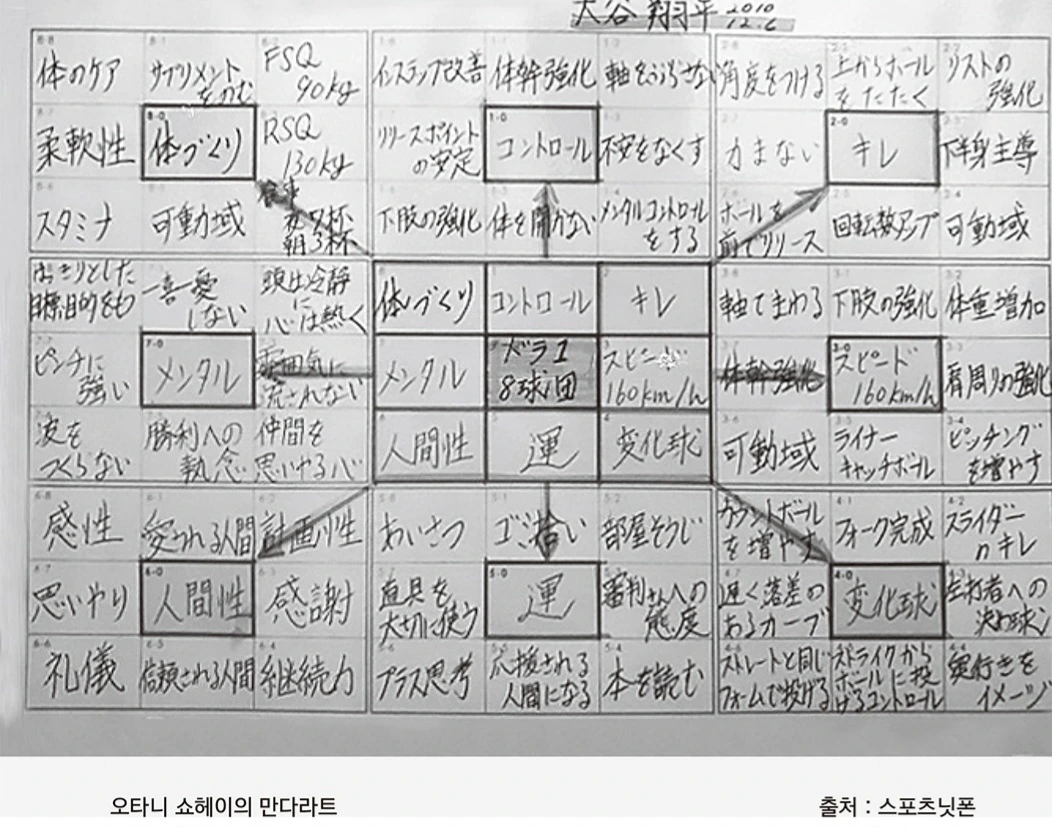 大谷 翔平 2010
12.6
体のケア
サプリメント
をのむ
FSQ
90kg
インステップ改善
体幹強化
軸をぶらさない
角度をつける
上からボール
をたたく
リストの
強化
柔軟性
体づくり
RSQ
130kg
リリースポイント
の安定
コントロール
不安をなくす
力まない
キレ
下半身主導
スタミナ
可動域
夜7杯
朝3杯
下肢の強化
体を開かない
メンタルコントロール
をする
ボールを
前でリリース
回転数アップ
可動域
はっきりとした
目標目的をもつ
一喜一憂
しない
頭は冷静
に
心は熱く
体づくり
コントロール
キレ
軸でまわる
下肢の強化
体重増加
ピンチに
強い
メンタル
雰囲気に
流されない
メンタル
ドラ1
8球団
スピード
160km/h
体幹強化
スピード
160km/h
肩周りの強化
波を
つくらない
勝利への
執念
仲間を
思いやる心
人間性
運
変化球
可動域
ライナー
キャッチボール
ピッチング
を増やす
感性
愛される人間
計画性
あいさつ
ゴミ拾い
部屋そうじ
カウントボール
を増やす
フォーク完成
スライダー
のキレ
思いやり
人間性
感謝
道具を
大切に使う
運
審判さんへの
態度
遅く落差の
あるカーブ
変化球
左打者への
決め球
礼儀
信頼される人間
継続力
プラス思考
応援される
人間になる
本を読む
ストレートと同じ
フォームで投げる
ストライクから
ボールに投
げるコントロール
奥行きを
イメージ
오타니 쇼헤이의 만다라트
출처 : 스포츠닛폰